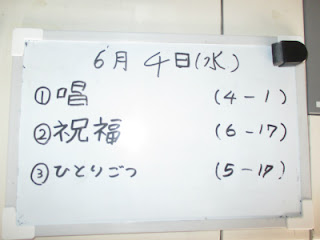 6月4日(水)
①唱 (4-1)
②祝福 (6-17)
③ひとりごつ (5-17)